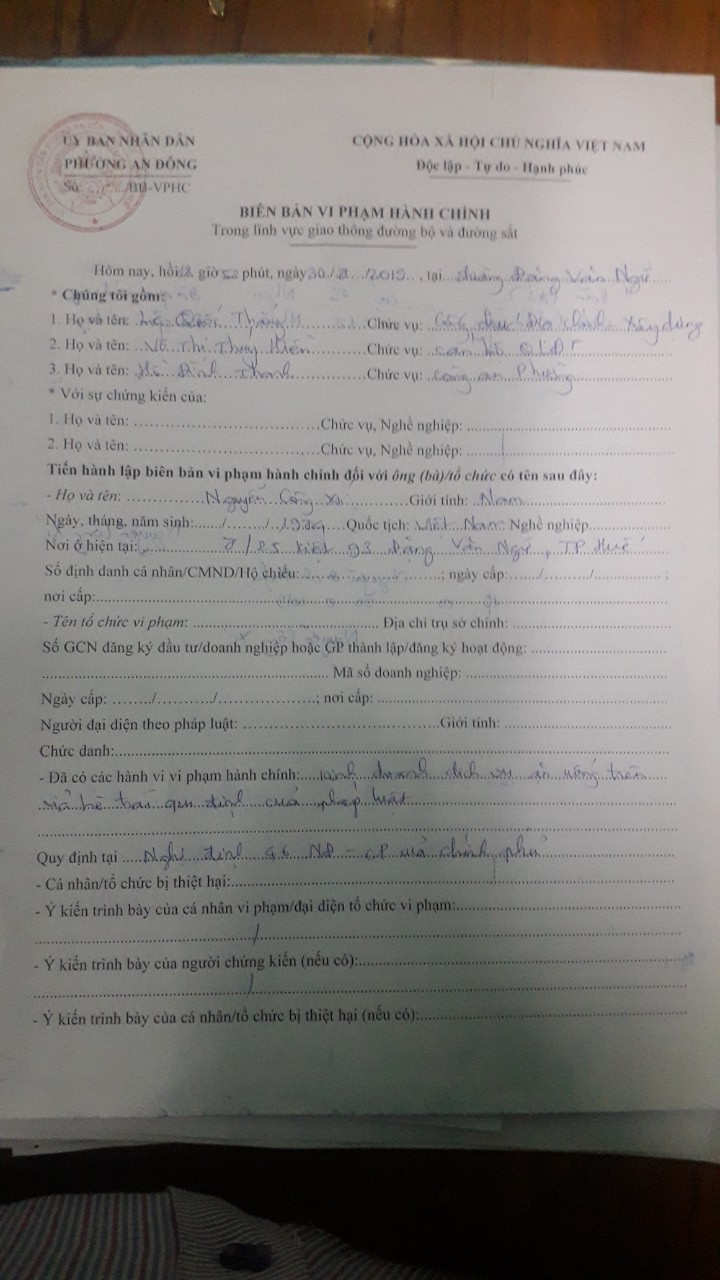 ỦY BAN NHÂN DÂN
PHƯỜNG AN ĐÔNG
Số: /BB-VPHC
CỘNG HÒA XÃ HỘI CHỦ NGHĨA VIỆT NAM
Độc lập - Tự do - Hạnh phúc
BIÊN BẢN VI PHẠM HÀNH CHÍNH
Trong lĩnh vực giao thông đường bộ và đường sắt
Hôm nay, hồi giờ phút, ngày 30/ /2019, tại đường Đặng Văn Ngữ
* Chúng tôi gồm:
1. Họ và tên: Quốc Chức vụ: Công chức Địa chính xây dựng
2. Họ và tên: Võ Thị Thúy Hiền Chức vụ: cán bộ QLĐT
3. Họ và tên: Đình Thanh Chức vụ: công an Phường
* Với sự chứng kiến của:
1. Họ và tên: Chức vụ, Nghề nghiệp:
2. Họ và tên: Chức vụ, Nghề nghiệp:
Tiến hành lập biên bản vi phạm hành chính đối với ông (bà)/tổ chức có tên sau đây:
- Họ và tên: Nguyễn Công Giới tính: Nam
Ngày, tháng, năm sinh: / / Quốc tịch: Việt Nam Nghề nghiệp
Nơi ở hiện tại: kiệt 93 Đặng Văn Ngữ, TP Huế
Số định danh cá nhân/CMND/Hộ chiếu: ; ngày cấp: / / ;
nơi cấp:
- Tên tổ chức vi phạm: Địa chỉ trụ sở chính:
Số GCN đăng ký đầu tư/doanh nghiệp hoặc GP thành lập/đăng ký hoạt động:
Mã số doanh nghiệp:
Ngày cấp: / / ; nơi cấp:
Người đại diện theo pháp luật: Giới tính:
Chức danh:
- Đã có các hành vi vi phạm hành chính: kinh doanh dịch vụ ăn uống trên
vỉa hè trái quy định của pháp luật
Quy định tại Nghị định 46 NĐ-CP của chính phủ
- Cá nhân/tổ chức bị thiệt hại:
- Ý kiến trình bày của cá nhân vi phạm/đại diện tổ chức vi phạm:
- Ý kiến trình bày của người chứng kiến (nếu có):
- Ý kiến trình bày của cá nhân/tổ chức bị thiệt hại (nếu có):